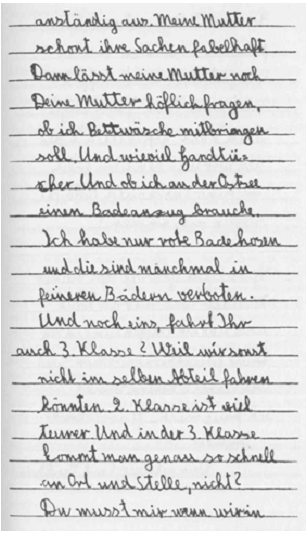 anständig aus. Meine Mutter
schont ihre Sachen fabelhaft.
Dann lässt meine Mutter noch
Deine Mutter höflich fragen,
ob ich Bettwäsche mitbringen
soll. Und wieviel Handtü=
cher. Und ob ich an der Ostsee
einen Badeanzug brauche.
Ich habe nur rote Badehosen
und die sind manchmal in
feineren Bädern verboten.
Und noch eins, fahrt Ihr
auch 3. Klasse? Weil wir sonst
nicht im selben Abteil fahren
könnten. 2. Klasse ist viel
teurer. Und in der 3. Klasse
kommt man genau so schnell
an Ort und Stelle, nicht?
Du musst mir wenn wir in